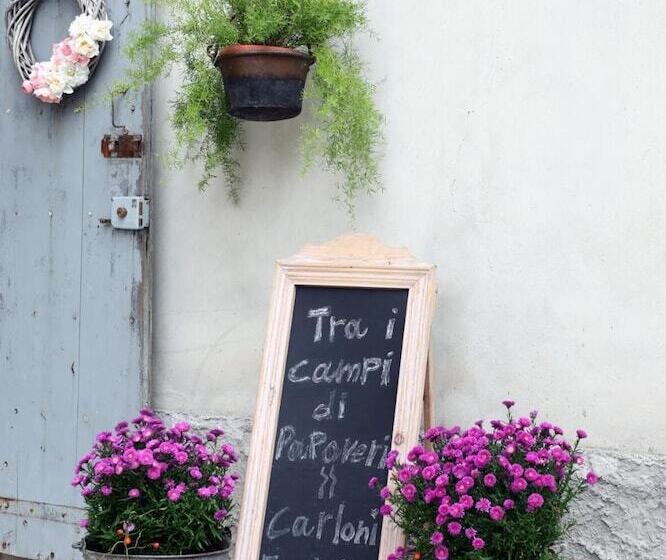 Tra i
campi
di
PaPaveri
Carloni